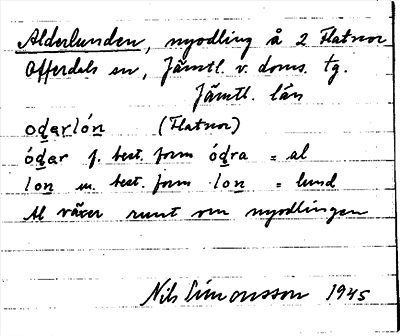 Alderlunden, nyodling å 2 Flatnor
Offerdals sn, Jämtl. v. doms. tg.
Jämtl. län
oderlón (Flatnor)
óder f. best. form ódra = al
lon m. best. form lon = lund
Al växer runt om nyodlingen
Nils Simonsson 1945